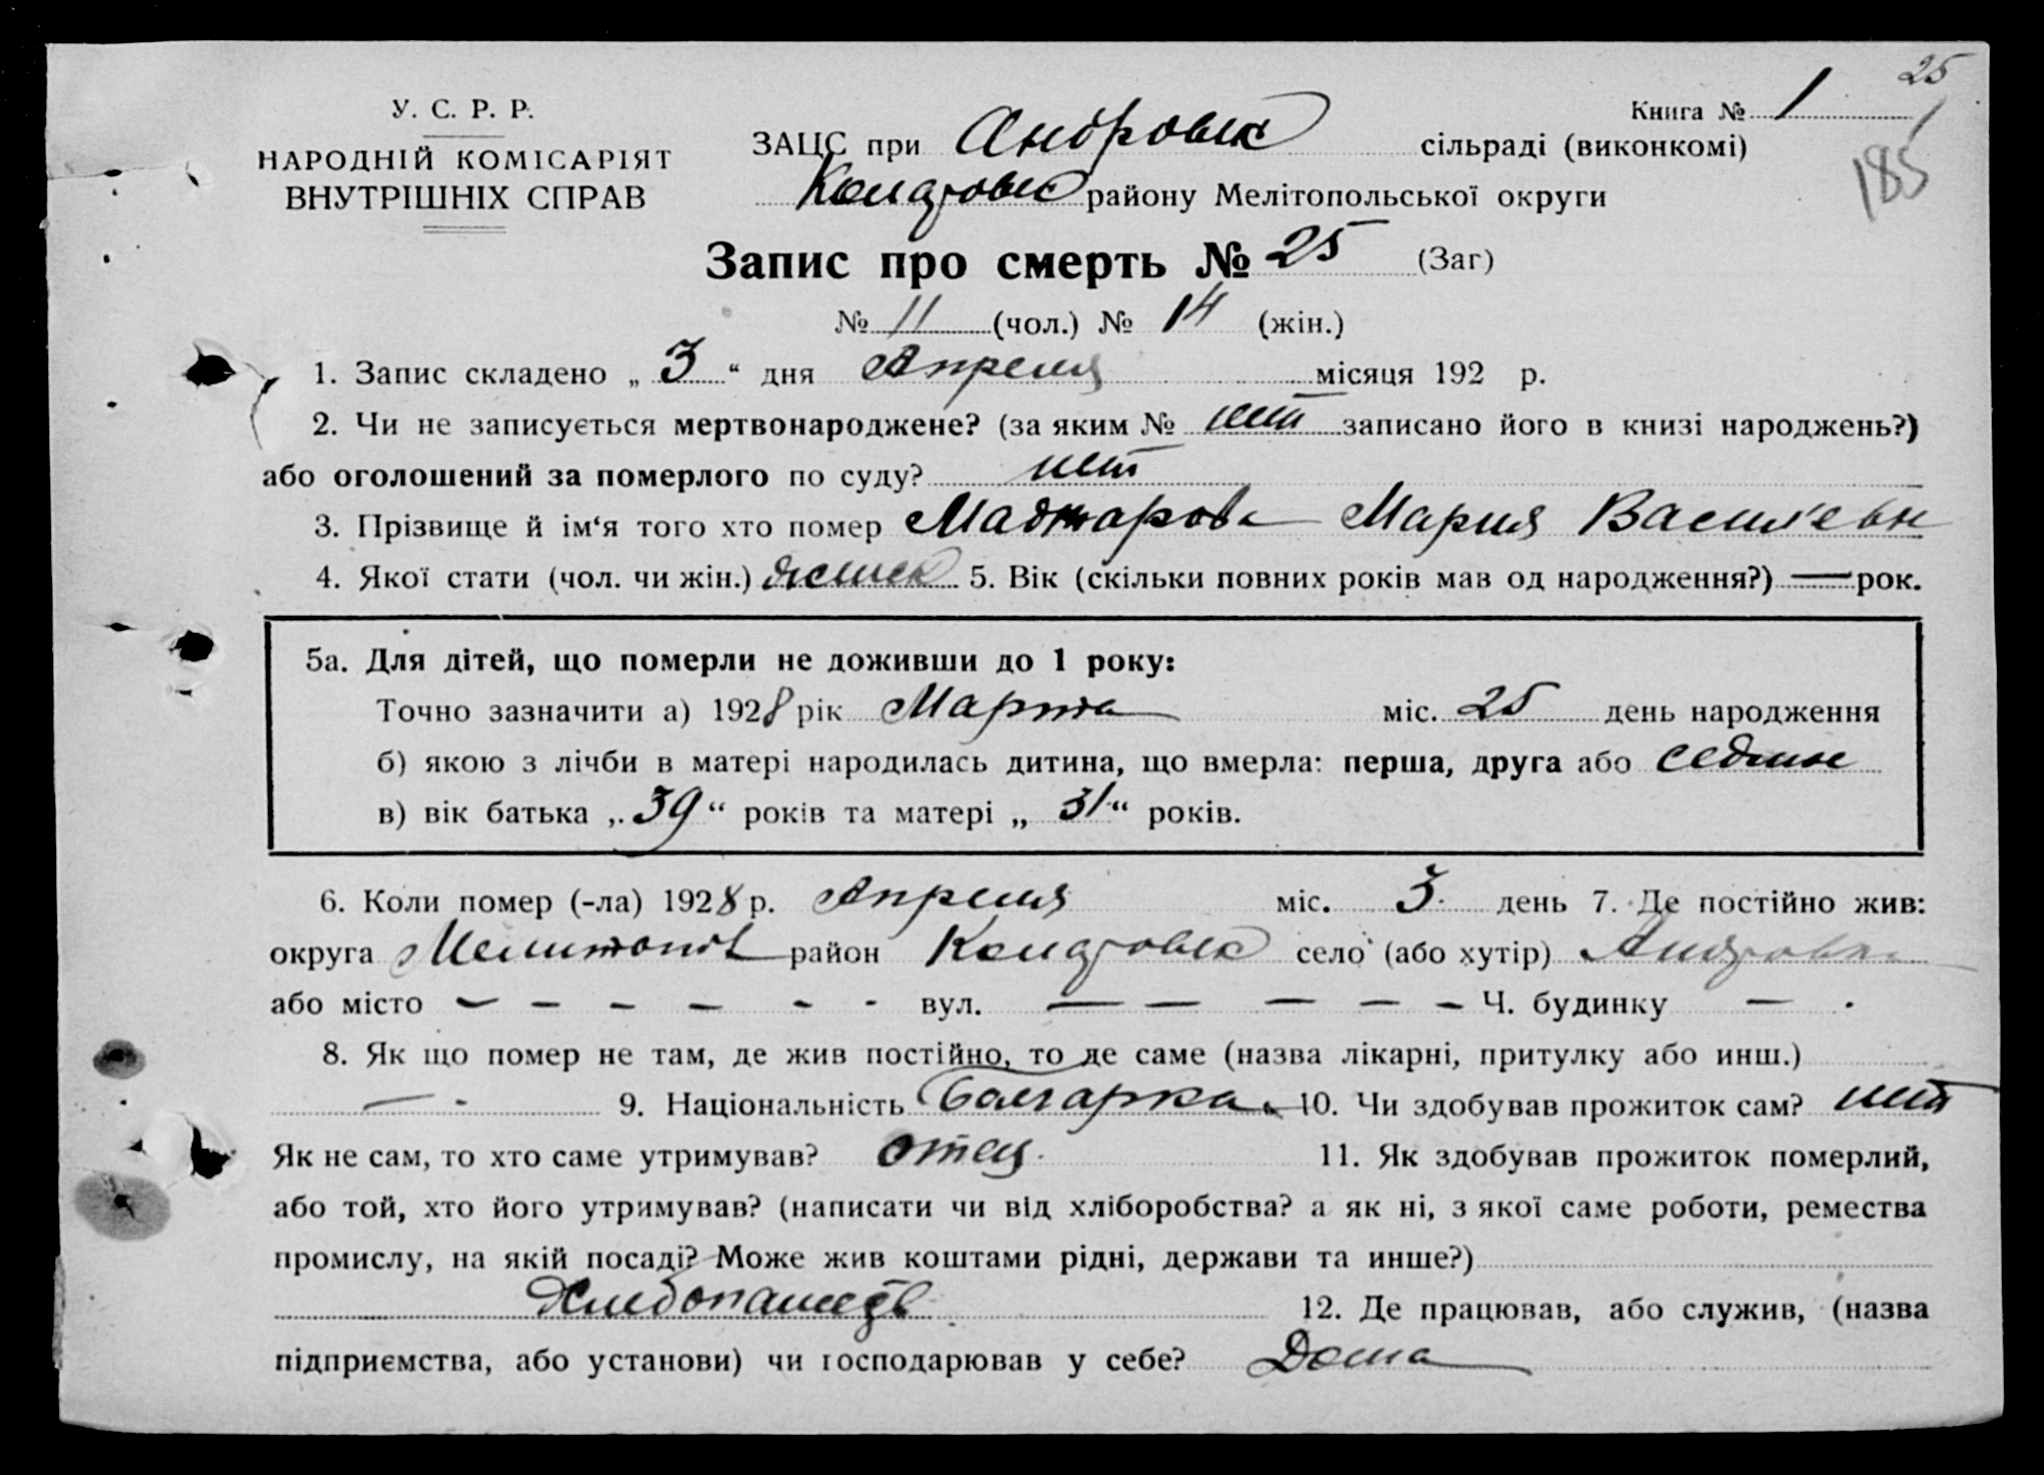 25
У. С. Р. Р.
НАРОДНІЙ КОМІСАРІЯТ
ВНУТРІШНІХ СПРАВ
Книга № 1
185
ЗАЦС при Андровск сільраді (виконкомі)
району Мелітопольської округи
Запис про смерть № 25 (Заг)
№ 11 (чол.) № 14 (жін.)
1. Запис складено „ 3 “ дня Апреля місяця 192 р.
2. Чи не записується мертвонароджене? (за яким № нет записано його в книзі народжень?)
або оголошений за померлого по суду? нет
3. Прізвище й ім‘я того хто помер Маджарова Мария Васильевн
4. Якої стати (чол. чи жін.) женск 5. Вік (скільки повних років мав од народження?) — рок.
5а. Для дітей, що померли не доживши до 1 року:
Точно зазначити а) 1928 рік Марта міс. 25 день народження
б) якою з лічби в матері народилась дитина, що вмерла: перша, друга або
в) вік батька „ 39 “ років та матері „ 31 “ років.
6. Коли помер (-ла) 1928 р. Апреля міс. 3 день 7. Де постійно жив:
округа Мелитопол район село (або хутір) Андровка
або місто — — — — - - вул. — — — — — Ч. будинку —
8. Як що помер не там, де жив постійно, то де саме (назва лікарні, притулку або инш.)
— - 9. Національність Болгарка 10. Чи здобував прожиток сам? нет
Як не сам, то хто саме утримував? отец 11. Як здобував прожиток померлий,
або той, хто його утримував? (написати чи від хліборобства? а як ні, з якої саме роботи, ремества
промислу, на якій посаді? Може жив коштами рідні, держави та инше?)
Хлебопашеств 12. Де працював, або служив, (назва
підприємства, або установи) чи господарював у себе? Дома